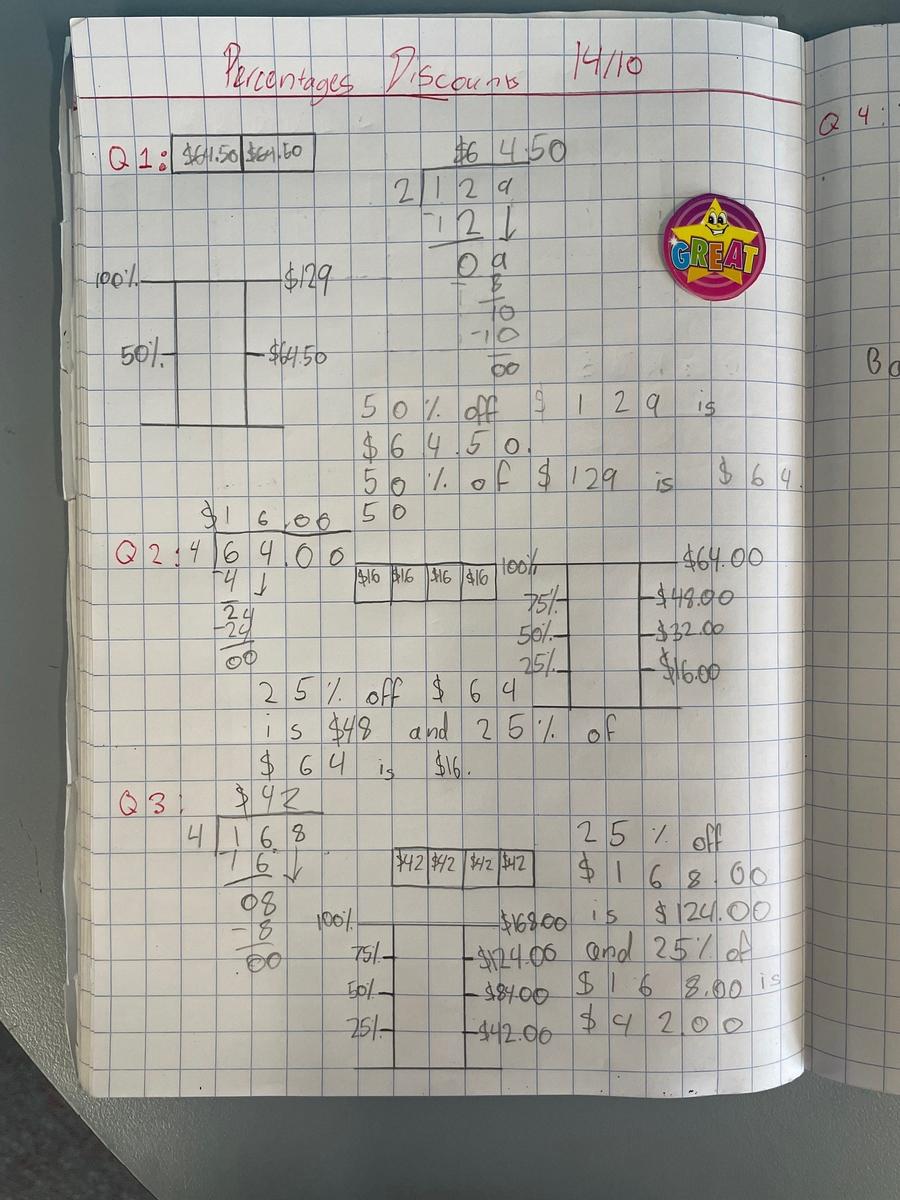 Percentages Discounts 14/10
Q 4:
Q1: $64.50 $64.50
$64.50
2 129
-12
09
- 8
10
-10
00
GREAT
100% $129
50% $64.50
50% off $129 is
$64.50.
50% of $129 is $64.
50
$16.00
Q2: 4 64.00
-4
24
-24
00
$16 $16 $16 $16
100% $64.00
75% $48.00
50% $32.00
25% $16.00
25% off $64
is $48 and 25% of
$64 is $16.
Q3: $42
4 16.8
-16
08
-8
00
$42 $42 $42 $42
100% $168.00
75% $124.00
50% $84.00
25% $42.00
25% off
$168.00
is $124.00
and 25% of
$168.00 is
$42.00